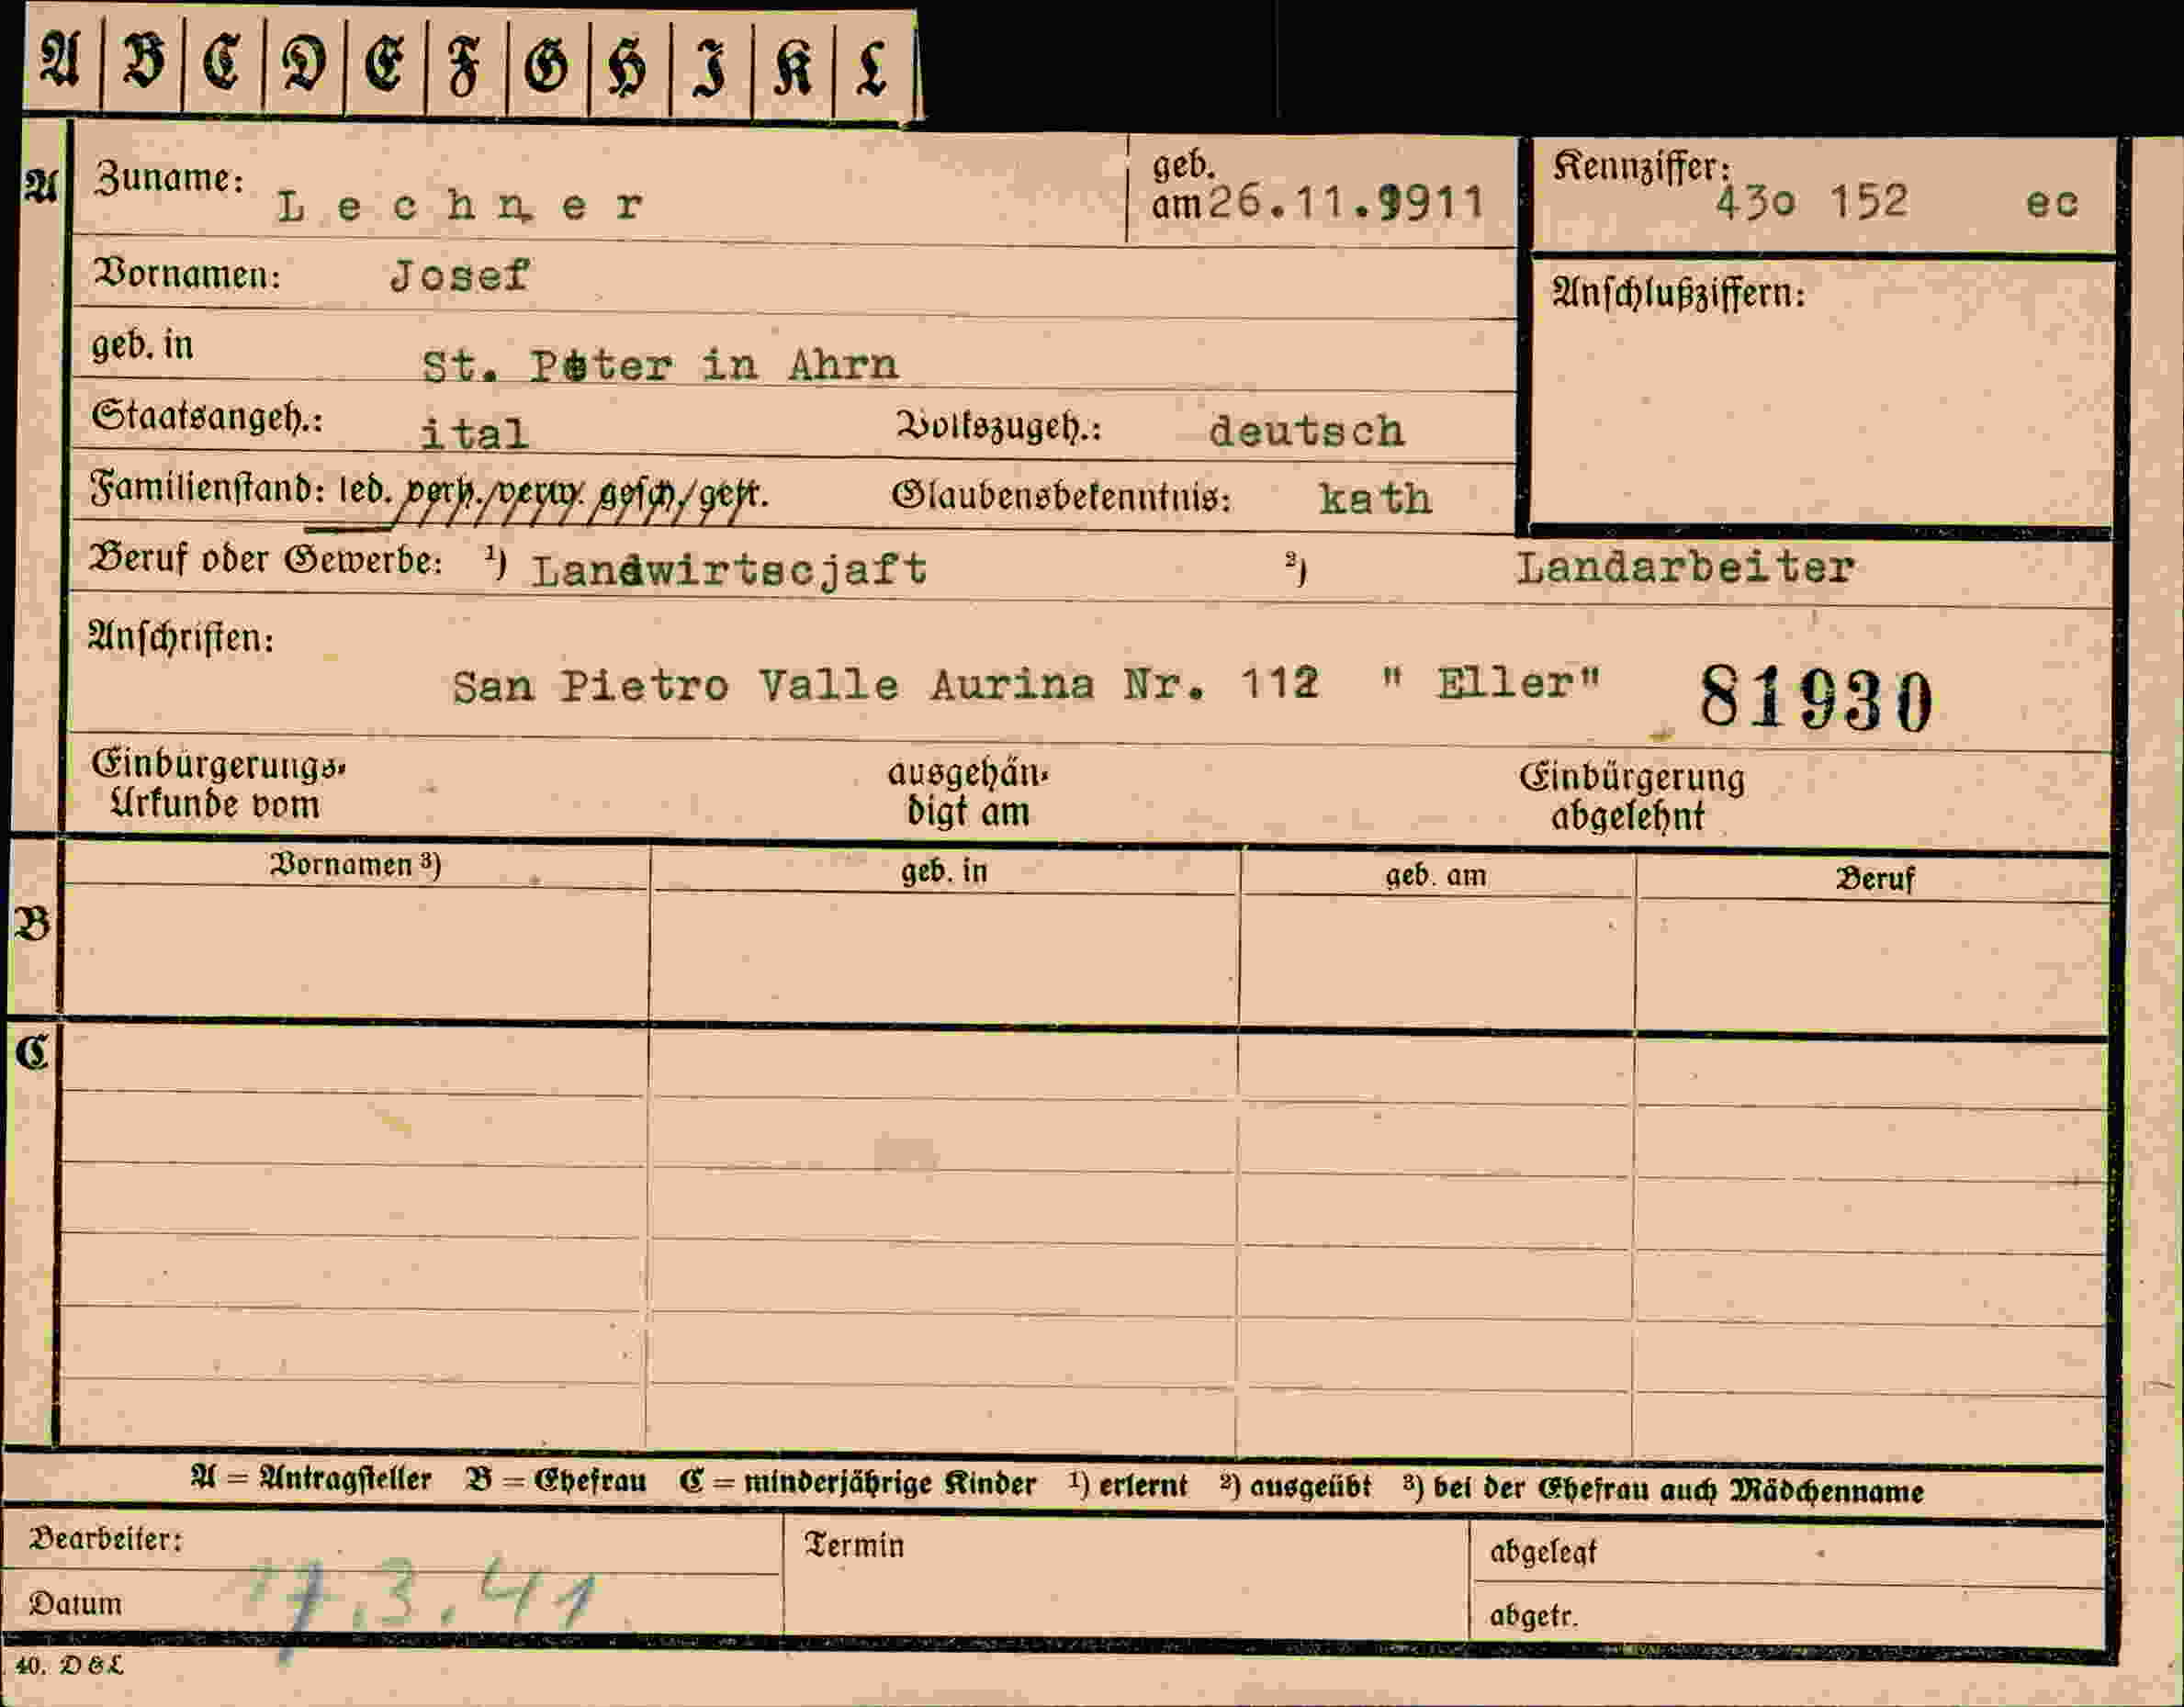 A B C D E F G H I K L
A Zuname: Lechner geb. am 26.11.9911 Kennziffer: 43o 152 ec
Vornamen: Josef Anschlußziffern:
geb. in St. Peter in Ahrn
Staatsangeh.: ital Volkszugeh.: deutsch
Familienstand: led. verh./verw. gesch./getr. Glaubensbekenntnis: kath
Beruf oder Gewerbe: ¹) Landwirtscjaft ²) Landarbeiter
Anschriften:
San Pietro Valle Aurina Nr. 112 " Eller" 81930
Einbürgerungs- ausgehän- Einbürgerung
Urkunde vom digt am abgelehnt
Vornamen ³) geb. in geb. am Beruf
B
C
A = Antragsteller B = Ehefrau C = minderjährige Kinder ¹) erlernt ²) ausgeübt ³) bei der Ehefrau auch Mädchenname
Bearbeiter: Termin abgelegt
Datum .3.41 abgetr.
40. D&L